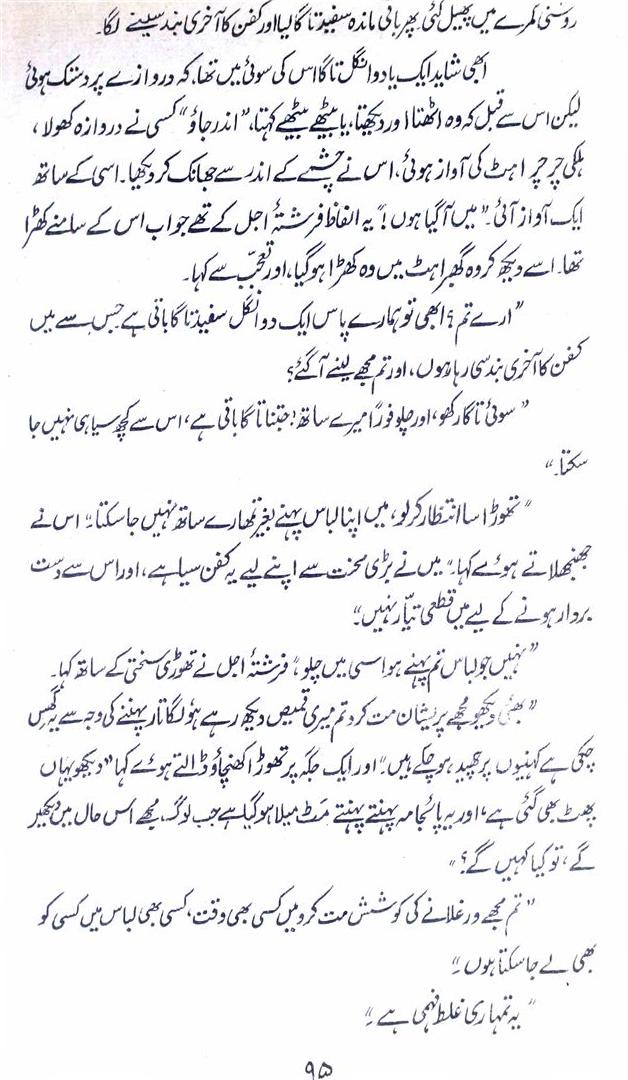 روشنی کمرے میں پھیل گئی۔ پھر باقی ماندہ سفید تاگا لیا اور کفن کا آخری بند سینے لگا۔
ابھی شاید ایک یا دو انگل تاگا اس کی سوئی میں تھا، کہ دروازے پر دستک ہوئی
لیکن اس سے قبل کہ وہ اٹھتا اور دیکھتا، یا بیٹھے بیٹھے کہتا، ”اندر جاؤ“ کسی نے دروازہ کھولا،
ہلکی چرچراہٹ کی آواز ہوئی، اس نے چشمے کے اندر سے جھانک کر دیکھا۔ اسی کے ساتھ
ایک آواز آئی۔ ”میں آ گیا ہوں!“ یہ الفاظ فرشتۂ اجل کے تھے جو اب اس کے سامنے کھڑا
تھا۔ اسے دیکھ کر وہ گھبراہٹ میں وہ کھڑا ہو گیا، اور تعجب سے کہا۔
”ارے تم؟ ابھی تو ہمارے پاس ایک دو انگل سفید تاگا باقی ہے جس سے میں
کفن کا آخری بند سی رہا ہوں، اور تم مجھے لینے آ گئے؟
”سوئی تاگا رکھو، اور چلو فوراً میرے ساتھ! جتنا تاگا باقی ہے، اس سے کچھ سیا ہی نہیں جا
سکتا۔“
”تھوڑا سا انتظار کر لو، میں اپنا لباس پہنے بغیر تمھارے ساتھ نہیں جا سکتا۔“ اس نے
جھنجھلاتے ہوئے کہا۔ ”میں نے بڑی محنت سے اپنے لیے یہ کفن سیا ہے، اور اس سے دست
بردار ہونے کے لیے میں قطعی تیار نہیں۔“
”نہیں جو لباس تم پہنے ہو اسی میں چلو“، فرشتۂ اجل نے تھوڑی سختی کے ساتھ کہا۔
”بھئی دیکھو مجھے پریشان مت کرو تم میری قمیص دیکھ رہے ہو لگاتار پہننے کی وجہ سے یہ گھس
چکی ہے کہنیوں پر چھید ہو چکے ہیں۔“ اور ایک جگہ پر تھوڑا کھنچاؤ ڈالتے ہوئے کہا ”دیکھو یہاں
پھٹ بھی گئی ہے، اور یہ پائجامہ پہنتے پہنتے مٹ میلا ہو گیا ہے جب لوگ مجھے اس حال میں دیکھیں
گے، تو کیا کہیں گے؟“
”تم مجھے ورغلانے کی کوشش مت کرو میں کسی بھی وقت، کسی بھی لباس میں کسی کو
بھی لے جا سکتا ہوں۔“
”یہ تمہاری غلط فہمی ہے۔“
۹۵